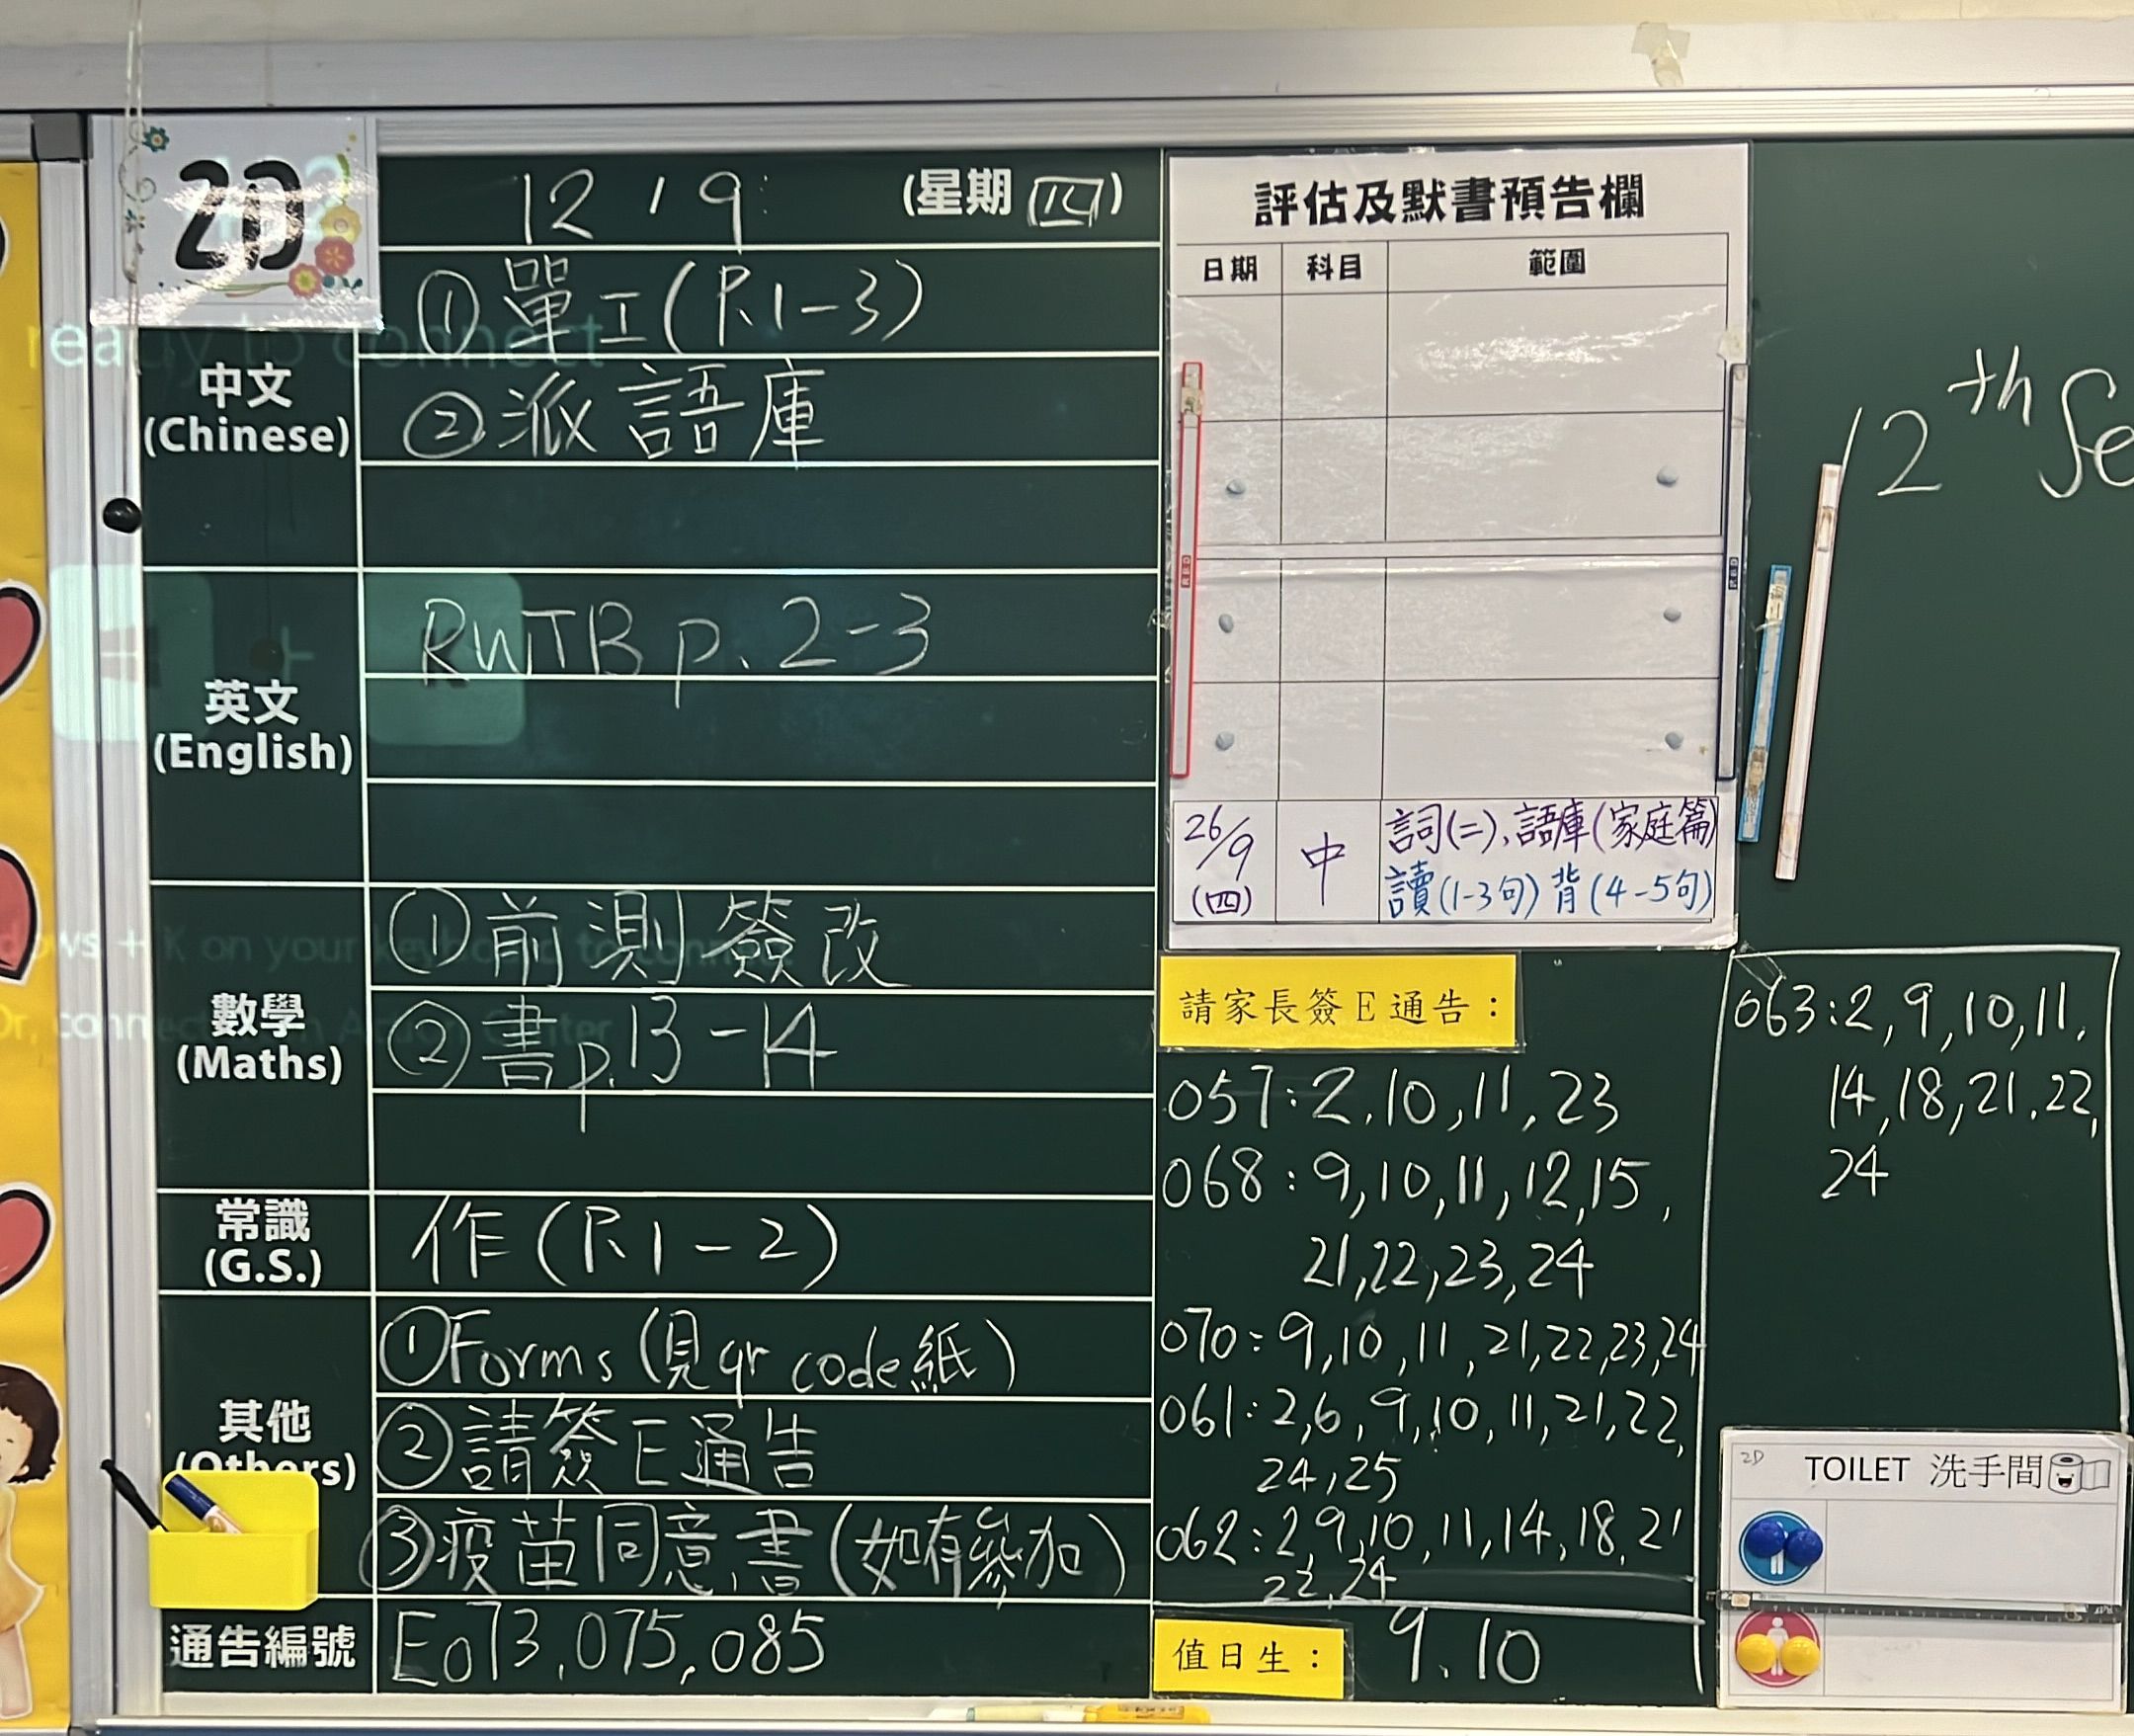 2D
12 / 9 (星期 四)
中文
(Chinese)
①單工(P.1-3)
②派語庫
英文
(English)
RWTB p.2-3
數學
(Maths)
①前測簽改
②書p.13-14
常識
(G.S.)
作(P.1-2)
其他
(Others)
①Forms (見qr code紙)
②請簽E通告
③疫苗同意書(如有參加)
通告編號
E073,075,085
ready to connect
評估及默書預告欄
日期 科目 範圍
26/9 (四) 中 詞(二)、語庫(家庭篇)
讀(1-3句) 背(4-5句)
請家長簽E通告：
057:2,10,11,23
068:9,10,11,12,15,
21,22,23,24
070:9,10,11,21,22,23,24
061:2,6,9,10,11,21,22,
24,25
062:2,9,10,11,14,18,21
22,24
值日生： 9.10
063:2,9,10,11,
14,18,21,22,
24
12th Se
2D TOILET 洗手間